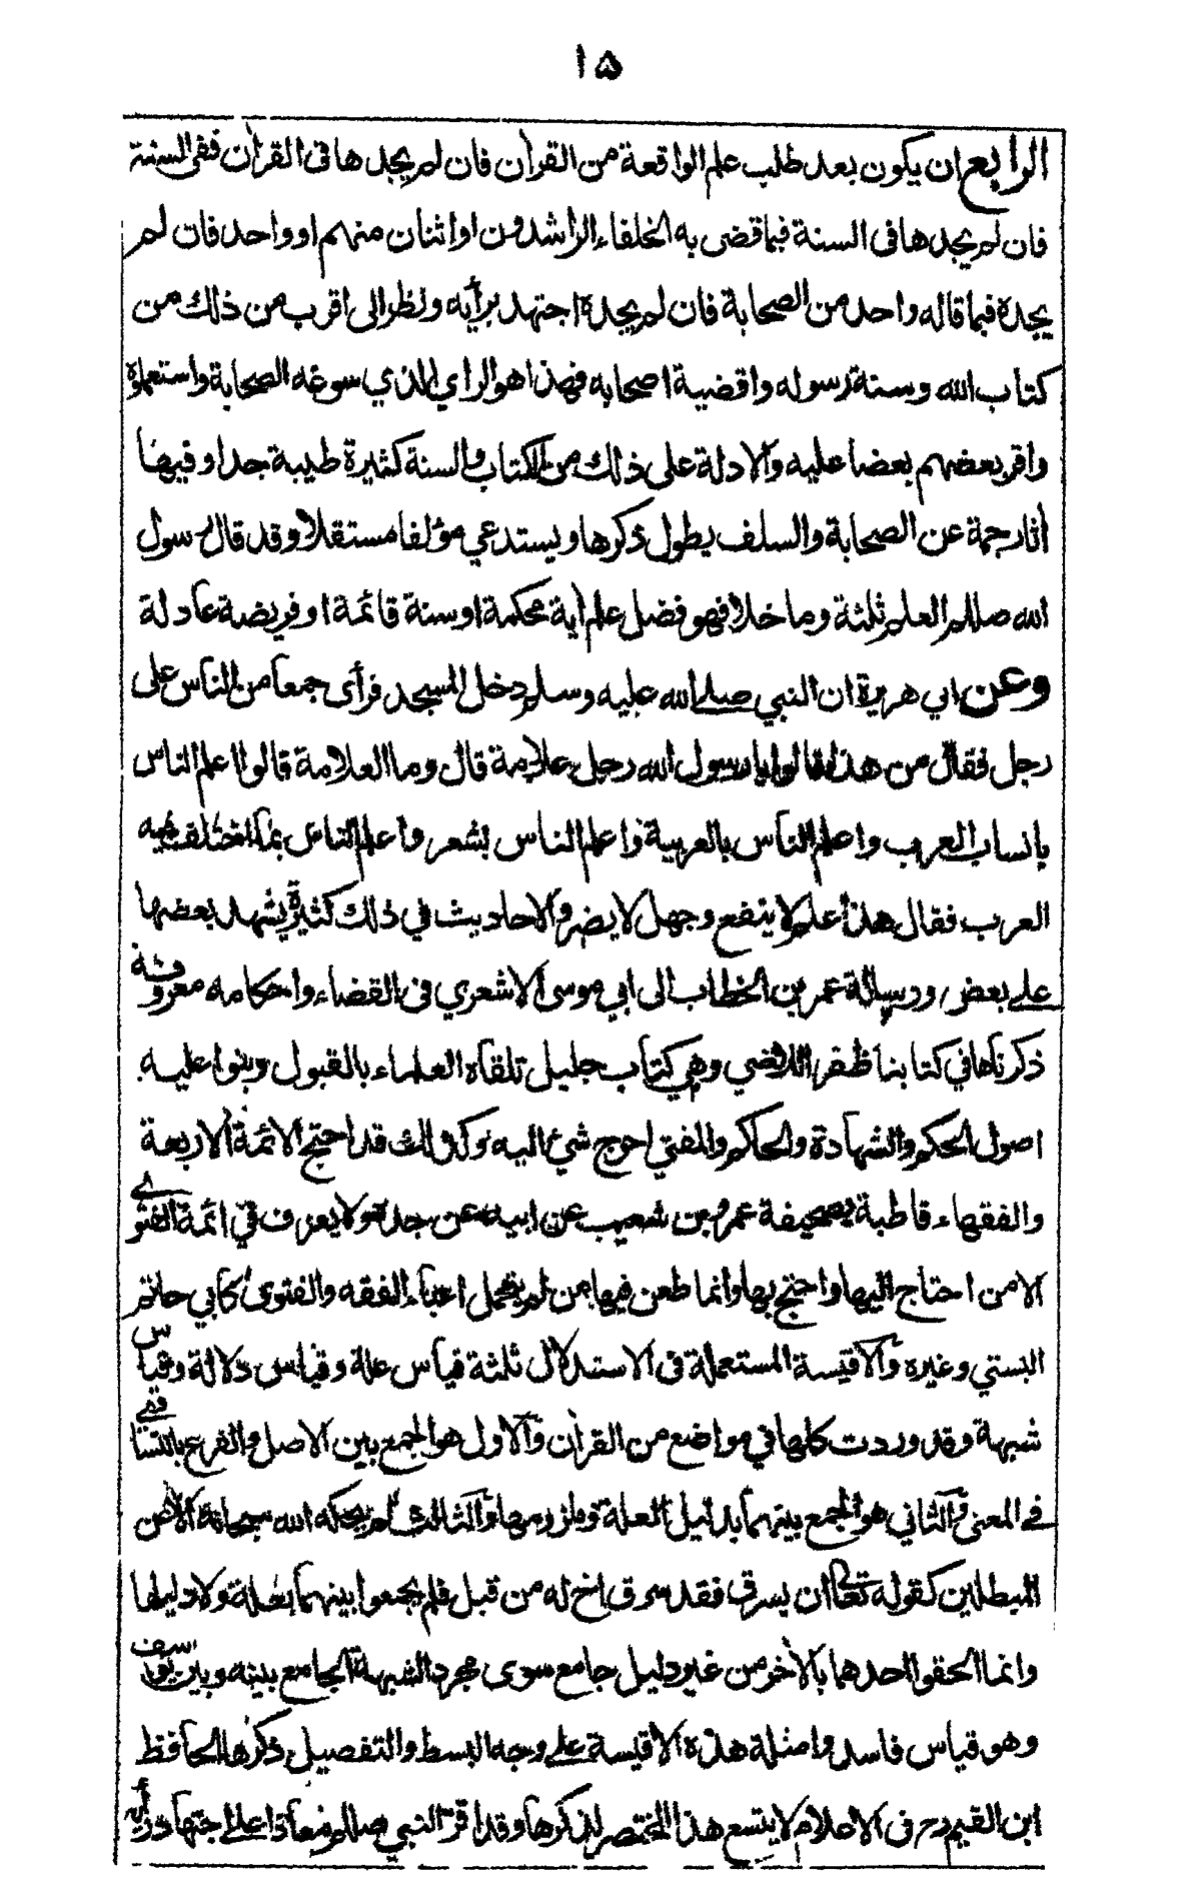 ۱۵
الرابع ان يكون بعد طلب علم الواقعة من القرأن فان لم يجدها فى القرأن ففى السنة
فان لم يجدها فى السنة فيما قضى به الخلفاء الراشدون او اثنان منهم او واحد فان لم
يجده فيما قاله واحد من الصحابة فان لم يجده اجتهد برأيه ونظر الى اقرب من ذلك من
كتاب الله وسنة رسوله واقضية اصحابه فهذا هو الراي الذي سوغه الصحابة واستعملوه
واقر بعضهم بعضا عليه والادلة على ذلك من الكتاب والسنة كثيرة طيبة جدا وفيها
أثار جمة عن الصحابة والسلف يطول ذكرها ويستدعي مؤلفا مستقلا وقد قال رسول
الله صللم العلم ثلثة وما خلا فهو فضل علم أية محكمة او سنة قائمة او فريضة عادلة
وعن ابي هريرة ان النبي صلے الله عليه وسلم دخل المسجد فرأى جمعا من الناس على
رجل فقال من هذا قالوا يا رسول الله رجل علامة قال وما العلامة قالوا اعلم الناس
بانساب العرب واعلم الناس بالعربية واعلم الناس بشعر واعلم الناس بما اختلف فيه
العرب فقال هذا علم لا ينفع وجهل لا يضر والاحاديث في ذلك كثيرة يشهد بعضها
علے بعض ورسالة عمر بن الخطاب الى ابي موسى الاشعري فى القضاء واحكامه معروفة
ذكرناها في كتابنا ظفر اللاضي وهي كتاب جليل تلقاه العلماء بالقبول وبنوا عليه
اصول الحكم والشهادة والحاكم والمفتي احوج شيء اليه وكذلك قد احتج الائمة الاربعة
والفقهاء قاطبة بصحيفة عمرو بن شعيب عن ابيه عن جده ولا يعرف في ائمة الفتوى
الا من احتاج اليها واحتج بها وانما طعن فيها من لم يتحمل اعباء الفقه والفتوى كابي حاتم
البستي وغيره والاقيسة المستعملة فى الاستدلال ثلثة قياس علة وقياس دلالة وقياس
شبهة وقد وردت كلها في مواضع من القرأن والاول هو الجمع بين الاصل والفرع بالتساقے
فے المعنى والثاني هو الجمع بينهما بدليل العلة وملزومها والثالث لم يحكه الله سبحانه الا عن
المبطلين كقوله تعالى ان يسرق فقد سرق اخ له من قبل فلم يجمعوا بينهما بعلة ولا دليلها
وانما الحقوا احدهما بالأخر من غير دليل جامع سوى مجرد الشبهة الجامع بينه وبين يوسف
وهو قياس فاسد وامثلة هذه الاقيسة علے وجه البسط والتفصيل ذكرها الحافظ
ابن القيم رح فى الاعلام لا يتسع هذا المختصر لذكرها وقد اقر النبي صللم معاذا علے اجتهاد رأيه